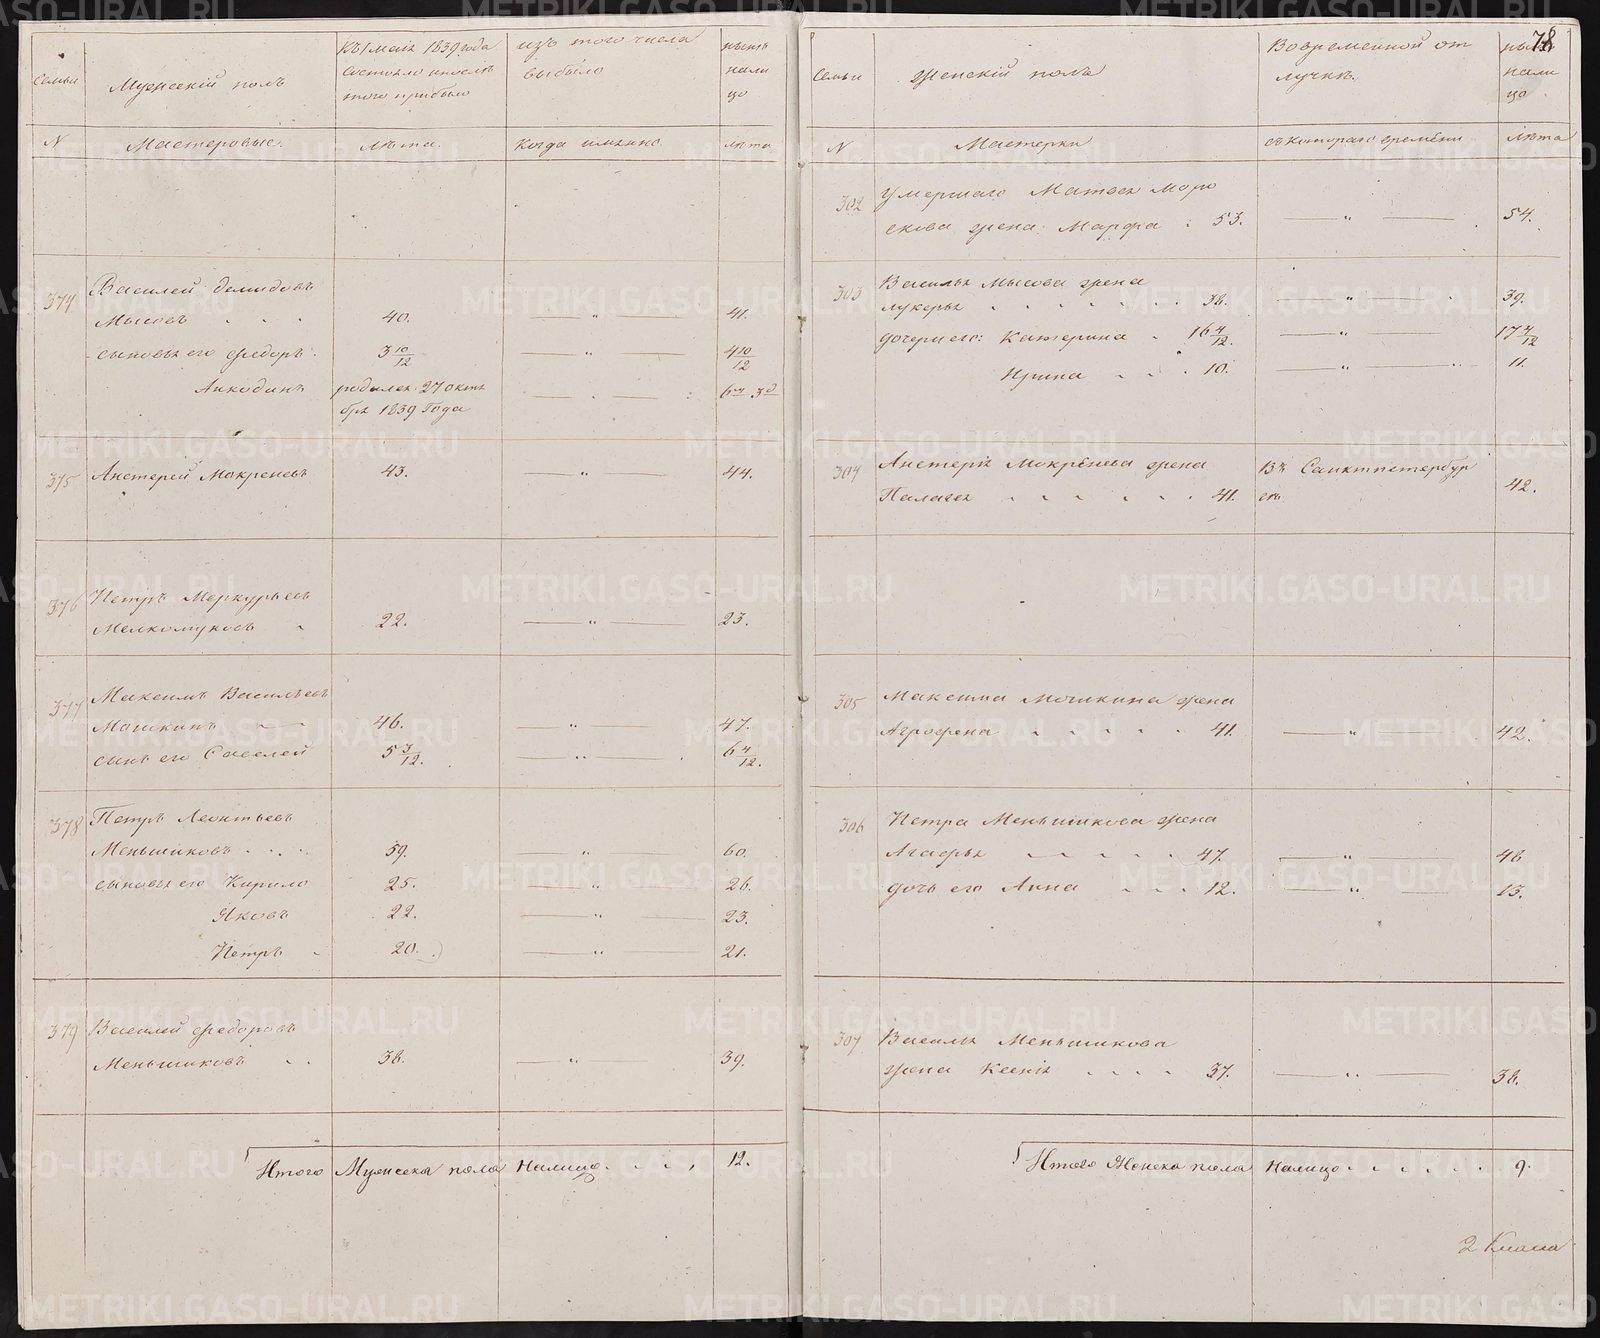 78
Семьи
Мужескій полъ
Къ 1 маія 1839 года
состояло и послѣ
того прибыло
изъ того числа
выбыло
нынѣ
нали
цо
N
Мастеровые.
Лѣта.
когда именно
лѣта
374
Василей Демидовъ
Мысовъ . . . 40. — „ — 41.
сыновья его Федоръ. 3 10/12 — „ — 4 10/12
родился 27 октя
бря 1839 года
375 Анстерей Мокреневъ 43. — „ — 44.
376 Петръ Меркурьевъ
22. — „ — 23.
377 Максимъ Васильевъ
Мошкинъ 46. „ — 47.
сынъ его Савелей 5 3/12. — „ — 6 4/12.
378 Петръ Леонтьевъ
Меньшиковъ . . . 59. — „ — 60.
сыновья его Кирило 25. — „ — 26.
Яковъ 22. — „ — 23.
Петръ 20. — „ — 21.
379 Василей Федоровъ
Меньшиковъ . . 38. — „ 39.
Итого Мужеска пола налицо . . . . 12.
Семьи
Женскій полъ
Во временной от
лучкѣ.
нынѣ
нали
цо
N
Мастерки
съ котораго времени
лѣта
302 Умершаго Матвея Моро
скова жена Марфа : 53. — „ — 54.
303 Василья Мысова жена
Лукерья . . . . . . 38. — „ — 39.
дочери его: Катерина . 16 4/12. — „ — 17 4/12
Ирина . . . 10. — „ — 11.
304 Анстерія Мокренева жена
Палагея . . . . . . 41.
Въ Санктпетербур
гѣ. 42.
305 Максима Мошкина жена
Агрофена . . . . . 41. — „ — 42.
306 Петра Меньшикова жена
Агафья . . . . 47. — „ — 48
дочь его Анна . . . 12. — „ — 13.
307 Василья Меньшикова
жена Ксенія . . . . 37. — „ — 38.
Итого Женска пола налицо . . . . . . 9.
METRIKI.GASO-URAL.RU